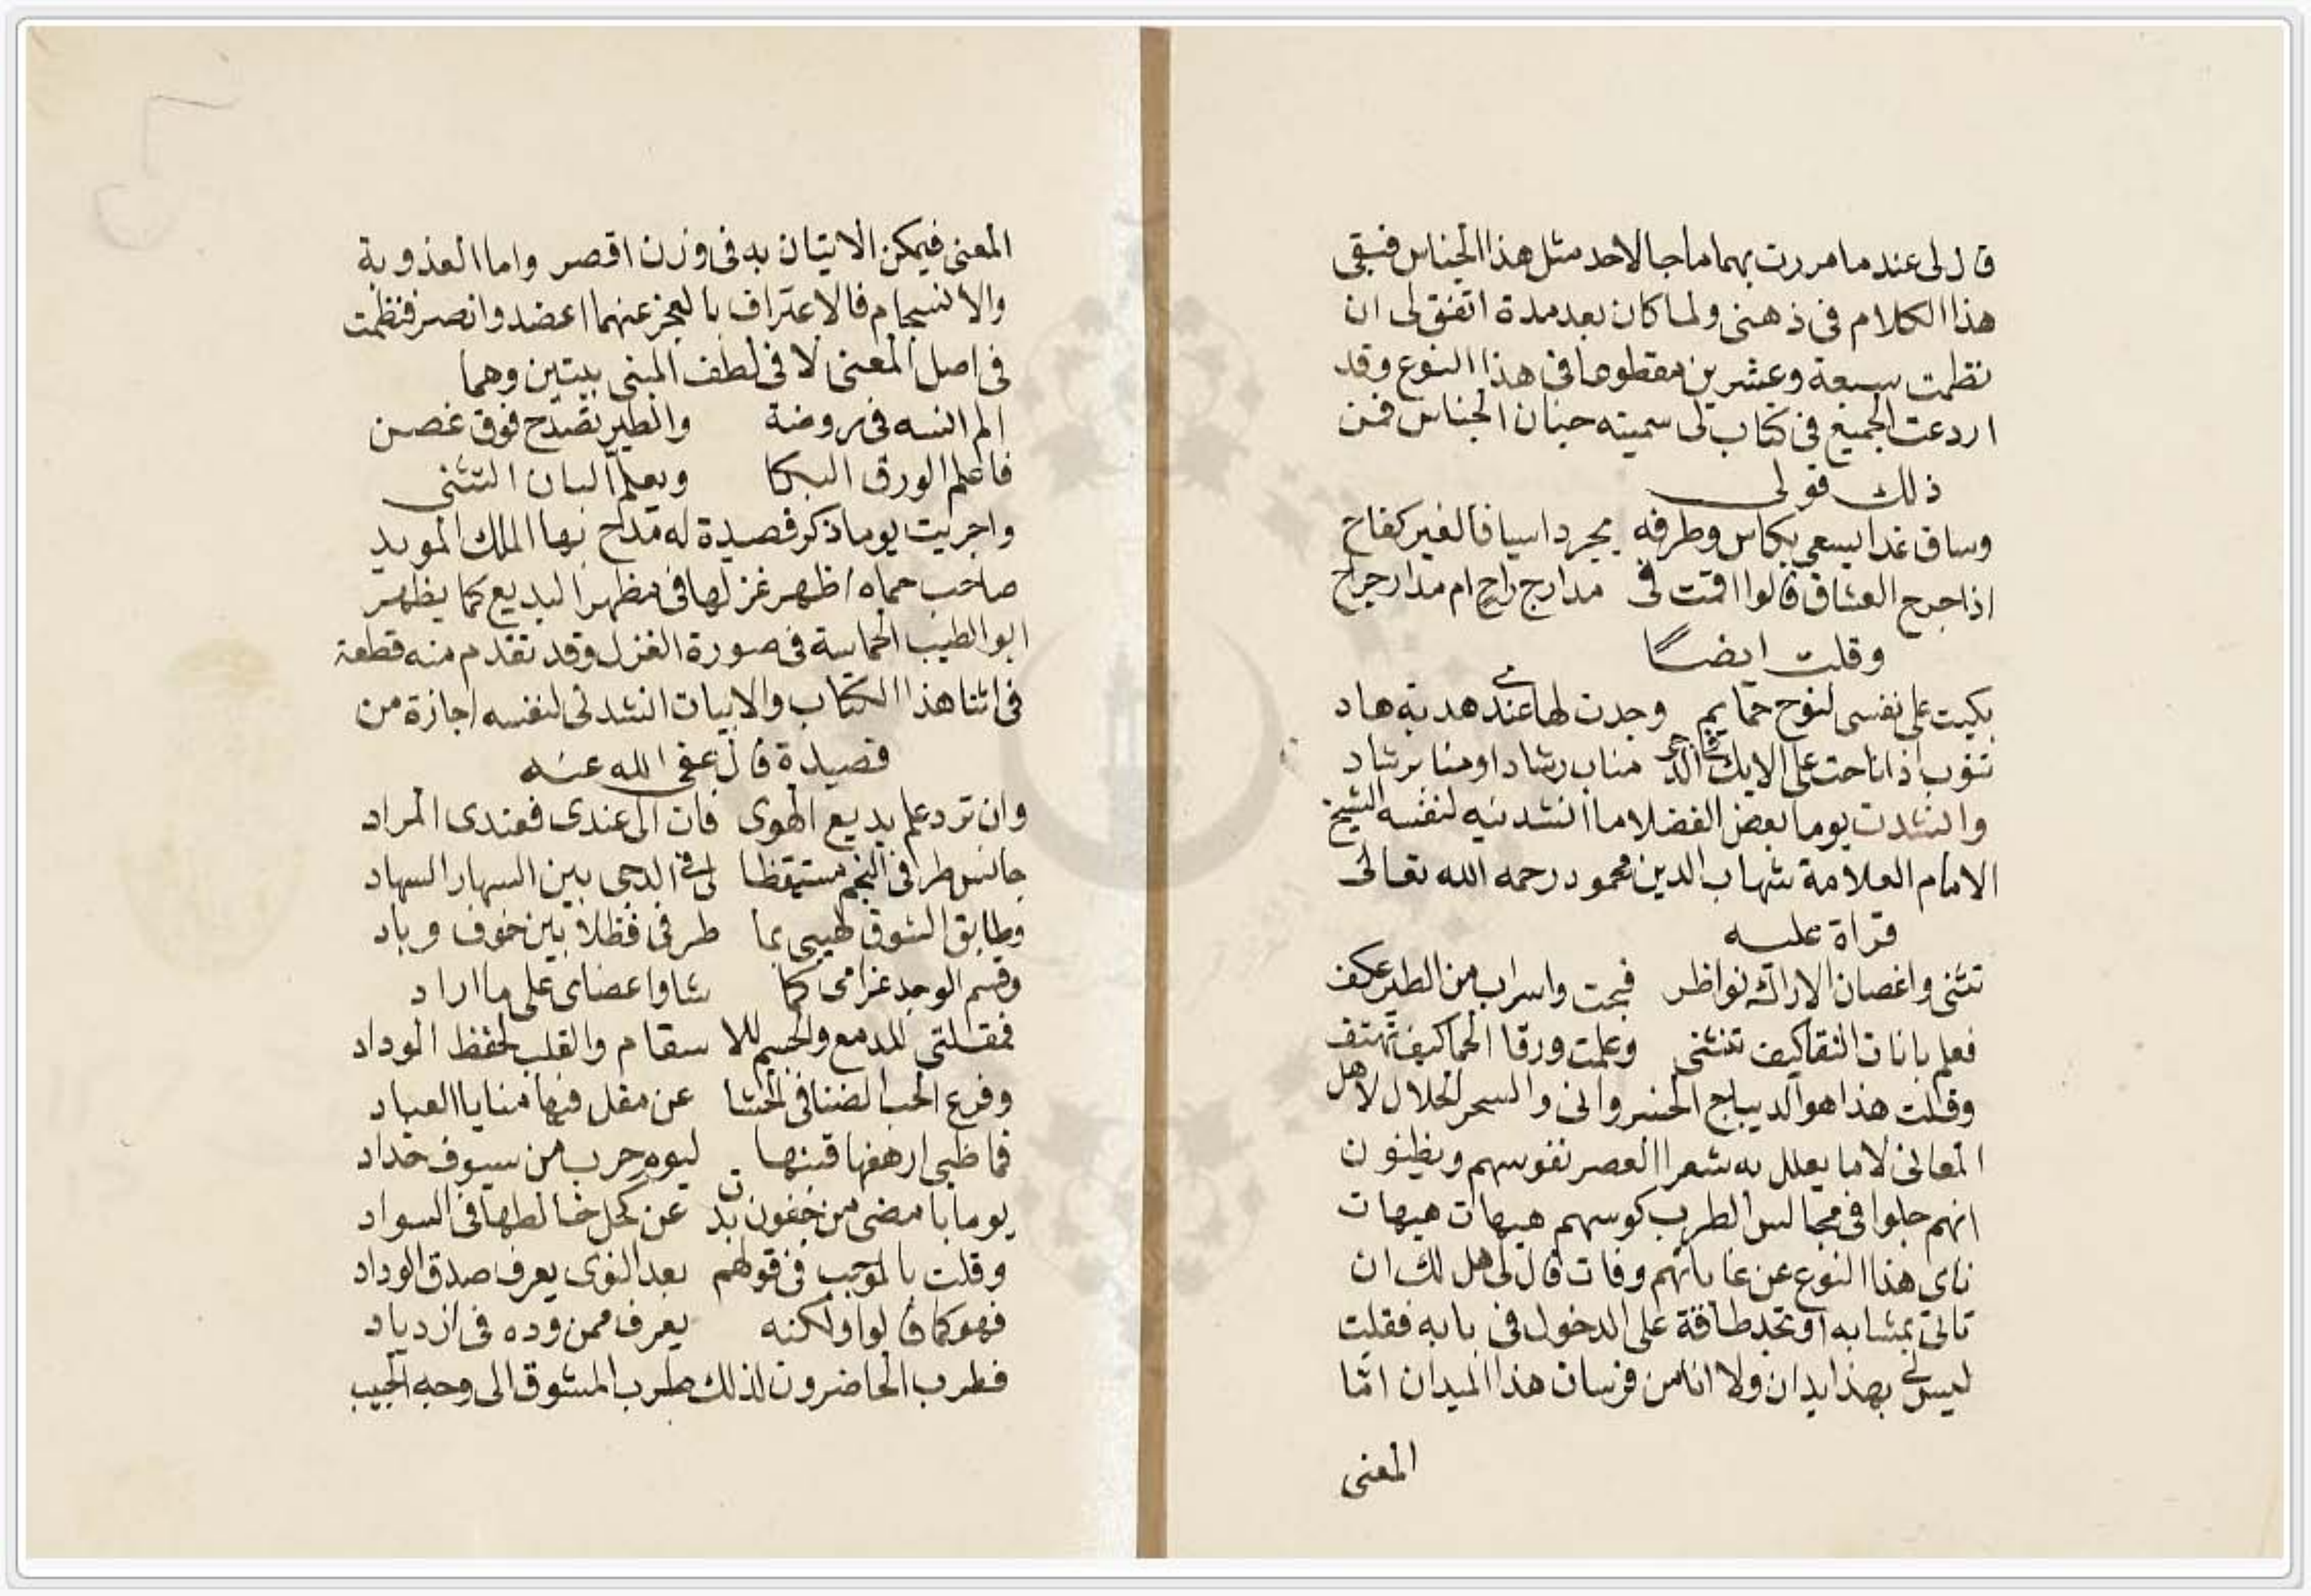 قال لى عند ما مررت بهما ما جا لاحد مثل هذا الجناس فبقى
هذا الكلام فى ذهنى ولما كان بعد مدة اتفق لى ان
نظمت سبعة وعشرين مقطوعا فى هذا النوع وقد
اردعت الجميع فى كتاب لى سميته جنان الجناس فمن
ذلك قولى
وساق غدا يسعى بكاس وطرفه يجرد اسيافا لغير كفاح
اذا جرح العشاق قالوا اقمت فى مدارج راح ام مدار جراح
وقلت ايضا
بكيت على نفسى لنوح حمايم وجدت لها عندى هدية هاد
تنوب اذا ناحت على الايك فى الدجى مناب رشاد او منابر شاد
وانشدت يوما بعض الفضلا ما انشدنيه لنفسه الشيخ
الامام العلامة شهاب الدين محمود رحمه الله تعالى
قراة عليه
تثنى واغصان الاراك نواظر فنحت واسراب من الطير عكف
فعلم بانات النقا كيف تنثنى وعلمت ورقا الحما كيف تهتف
وقلت هذا هو الديباج الخسروانى والسحر الحلال لاهل
المعانى لا ما يعلل به شعرا العصر نفوسهم ويظنون
انهم جلوا فى مجالس الطرب كوسهم هيهات هيهات
ناى هذا النوع عن غاياتهم وفات قال لى هل لك ان
تاتى بمشابه او تجد طاقة على الدخول فى بابه فقلت
ليس لى بهذا يدان ولا انا من فرسان هذا الميدان امّا
المعنى
المعنى فيمكن الاتيان به فى وزن اقصر واما العذوبة
والانسجام فالاعتراف بالعجز عنهما اعضد وانصر فنظمت
فى اصل المعنى لا فى لطف المبنى بيتين وهما
الم انسه فى روضة والطير تصدح فوق غصن
فاعلم الورق البكا ويعلم البان التثنى
واجريت يوما ذكر قصيدة له مدح بها الملك المويد
صاحب حماه اظهر غزلها فى مظهر البديع كما يظهر
ابو الطيب الحماسة فى صورة الغزل وقد تقدم منه قطعة
فى اثنا هذا الكتاب والابيات انشدنى لنفسه اجازة من
قصيدة قال عفى الله عنه
وان ترد علم بديع الهوى فات الى عندى فعندى المراد
جانس طرفى النجم مستيقظا لى فى الدجى بين السهار السهاد
وطابق الشوق لهيبى بما طرفى فظلا بين خوف وباد
وقسم الوجد غرامى كما شا واعضاى على ما اراد
فمقلتى للدمع والجسم للا سقام والقلب لحفظ الوداد
وفرع الحب الضنا فى الحشا عن مقل فيها منايا العباد
فما ظبى ارهفها قينها ليوم حرب من سيوف حداد
يوما بامضى من جفون بدت عن كحل خالطها فى السواد
وقلت بالموجب فى قولهم بعد النوى يعرف صدق الوداد
فهو كما قالوا ولكنه يعرف ممن وده فى ازدياد
فطرب الحاضرون لذلك طرب المشوق الى وجه الحبيب